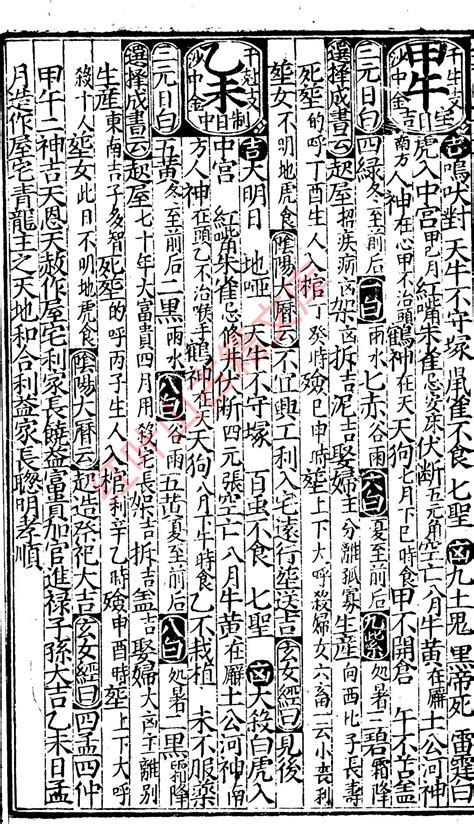 干生支 甲午 宝日 沙中金 吉 鳴吠對 天牛不守塚 䑕雀不食 七聖 凶 九土鬼 黑帝死 雷霆白
虎入中宮 甲己月紅嘴朱雀忌安床伏断五元角空亡八月牛黃在廨土公河神
南方人神在心甲不治頭鶴神在天天狗七月下巳時食 甲不開倉 午不苫盖
三元日白 四綠冬至前后 一白雨水 七赤谷雨 六白夏至前后 九紫処暑 三碧霜降
選擇成書云 起屋招疾病凶架吉拆吉泥吉娶婦主分離孤寡生産向西北子長壽
死塟的呼丁酉生人入棺丁癸時殮巳申時塟上下大呼殺婦女六畜一云小喪利
塟女不明地虎食 陰陽大曆云 不宜興工利入宅遠行塟送吉 玄女經曰 見後
干尅支 乙未 制日 沙中金 吉 大明日 地啞 天牛不守塚 百虫不食 七聖 凶 天殺白虎入
中宮 紅嘴朱雀忌修厨伏断四元張空亡八月牛黃在廨土公河神南
方人神在頭乙不治喉手鶴神在天天狗八月下時食 乙不栽植 未不服藥
三元日白 五黃冬至前后 二黑雨水 八白谷雨 五黃夏至前后 八白処暑 二黑霜降
選擇成書云 起屋七十年大富貴四月用殺宅長架吉拆吉盖吉娶婦大凶主離別
生産東南吉子多智死塟的呼丙子生人入棺利辛乙時殮申酉時塟上下大呼
殺十人塟女此日不明地虎食 陰陽大曆云 起造祭祀大吉 玄女經曰 四孟四仲
甲午二神吉天恩天赦作屋宅利家長饒益富貴加官進禄子孫大吉乙未日孟
月裝作屋宅青龍王之天地和合利益家長聰明孝順
红叶山古籍文库